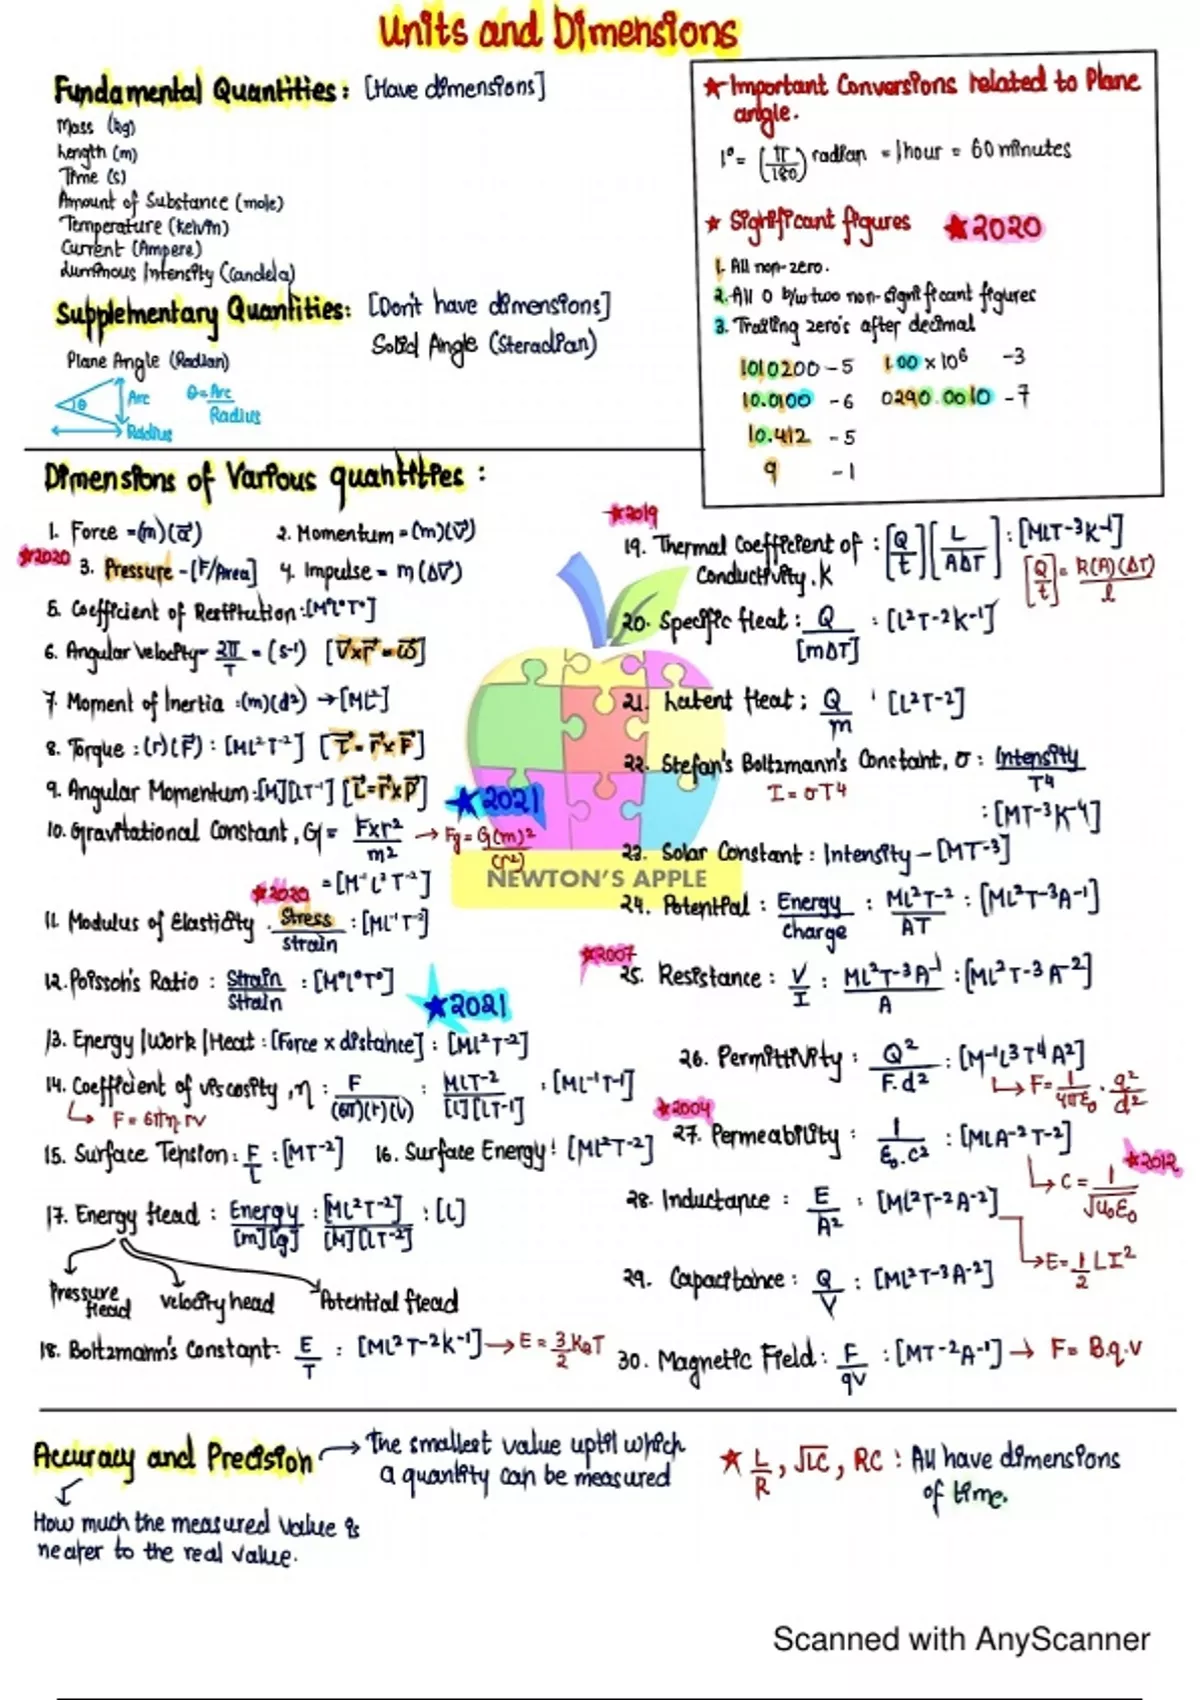 Units and Dimensions
Fundamental Quantities: [Have dimensions]
Mass (kg)
Length (m)
Time (s)
Amount of Substance (mole)
Temperature (kelvin)
Current (Ampere)
Luminous Intensity (Candela)
Supplementary Quantities: [Don't have dimensions]
Plane Angle (Radian)
Solid Angle (Steradian)
θ Arc Radius
θ = Arc/Radius
★ Important Conversions related to Plane angle.
1° = (π/180) radian = 1 hour = 60 minutes
★ Significant figures ★2020
1. All non-zero.
2. All 0 b/w two non-significant figures
3. Trailing zero's after decimal
1010200 - 5 1.00 × 10⁶ - 3
10.0100 - 6 0290.0010 - 7
10.412 - 5
9 - 1
Dimensions of Various quantities :
1. Force = (m)(a⃗) 2. Momentum = (m)(v⃗)
★2020 3. Pressure - [F/Area] 4. Impulse = m(Δv⃗)
5. Coefficient of Restitution : [M⁰L⁰T⁰]
6. Angular Velocity = 2π/T = (s⁻¹) [v⃗×r⃗ = ω⃗]
7. Moment of Inertia : (m)(d²) → [ML²]
8. Torque : (r)(F⃗) : [ML²T⁻²] [τ⃗ = r⃗×F⃗]
9. Angular Momentum : [M][LT⁻¹] [L⃗ = r⃗×p⃗]
★2021
10. Gravitational Constant, G = F×r²/m² → Fg = G(m)²/(r²)
= [M⁻¹L³T⁻²]
★2020
11. Modulus of Elasticity . Stress/Strain : [ML⁻¹T⁻²]
12. Poisson's Ratio : Strain/Strain : [M⁰L⁰T⁰]
★2021
13. Energy |Work |Heat : [Force × distance] : [ML²T⁻²]
14. Coefficient of viscosity, η : F/(6π)(r)(v) : MLT⁻²/[L][LT⁻¹] : [ML⁻¹T⁻¹]
↳ F = 6πη rv
15. Surface Tension : F/L : [MT⁻²] 16. Surface Energy : [ML²T⁻²]
17. Energy Head : Energy/[m][g] : [ML²T⁻²]/[M][LT⁻²] : [L]
Pressure Head Velocity head Potential Head
18. Boltzmann's Constant : E/T : [ML²T⁻²K⁻¹] → E = 3/2 KBT
★2019
19. Thermal Coefficient of Conductivity. K : [Q/t][L/AΔT] : [MLT⁻³K⁻¹]
[Q/t] = K(A)(ΔT)/l
20. Specific Heat : Q/[mΔT] : [L²T⁻²K⁻¹]
21. Latent Heat : Q/m : [L²T⁻²]
22. Stefan's Boltzmann's Constant, σ : Intensity/T⁴
I = σT⁴
: [MT⁻³K⁻⁴]
23. Solar Constant : Intensity - [MT⁻³]
NEWTON'S APPLE
24. Potential : Energy/charge : ML²T⁻²/AT : [ML²T⁻³A⁻¹]
★2007
25. Resistance : V/I : ML²T⁻³A⁻¹/A : [ML²T⁻³A⁻²]
26. Permittivity : Q²/F.d² : [M⁻¹L⁻³T⁴A²]
↳ F = 1/4πε₀ . q²/d²
★2004
27. Permeability : 1/ε₀.c² : [MLA⁻²T⁻²]
★2012
↳ C = 1/√μ₀ε₀
28. Inductance : E/A² : [ML²T⁻²A⁻²]
↳ E = 1/2 LI²
29. Capacitance : Q/V : [ML²T⁻³A⁻²]
30. Magnetic Field : F/qv : [MT⁻²A⁻¹] → F = B.q.v
Accuracy and Precision → The smallest value uptil which
a quantity can be measured
How much the measured value is
nearer to the real value.
★ L/R, √LC, RC : All have dimensions
of time.
Scanned with AnyScanner